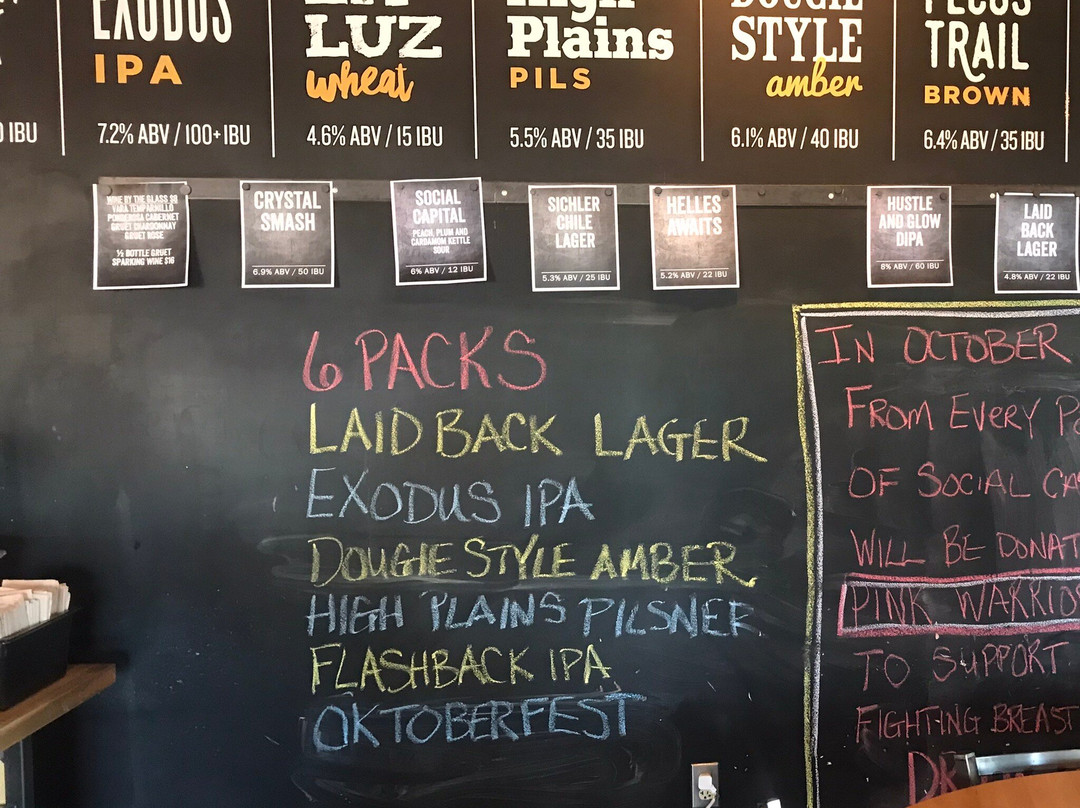 EXODUS
IPA
7.2% ABV / 100+ IBU
LUZ
wheat
4.6% ABV / 15 IBU
High
Plains
PILS
5.5% ABV / 35 IBU
DOUGIE
STYLE
amber
6.1% ABV / 40 IBU
PECOS
TRAIL
BROWN
6.4% ABV / 35 IBU
0 IBU
WINE BY THE GLASS $9
VARA TEMPARNILLO
PONDEROSA CABERNET
GRUET CHARDONNAY
GRUET ROSE
½ BOTTLE GRUET
SPARKING WINE $16
CRYSTAL
SMASH
6.9% ABV / 50 IBU
SOCIAL
CAPITAL
PEACH, PLUM AND
CARDAMOM KETTLE
SOUR
6% ABV / 12 IBU
SICHLER
CHILE
LAGER
5.3% ABV / 25 IBU
HELLES
AWAITS
5.2% ABV / 22 IBU
HUSTLE
AND GLOW
DIPA
8% ABV / 60 IBU
LAID
BACK
LAGER
4.8% ABV / 22 IBU
6 PACKS
LAID BACK LAGER
EXODUS IPA
DOUGIE STYLE AMBER
HIGH PLAINS PILSNER
FLASHBACK IPA
OKTOBERFEST
IN OCTOBER
FROM EVERY P
OF SOCIAL CA
WILL BE DONAT
PINK WARRIO
TO SUPPORT
FIGHTING BREAST